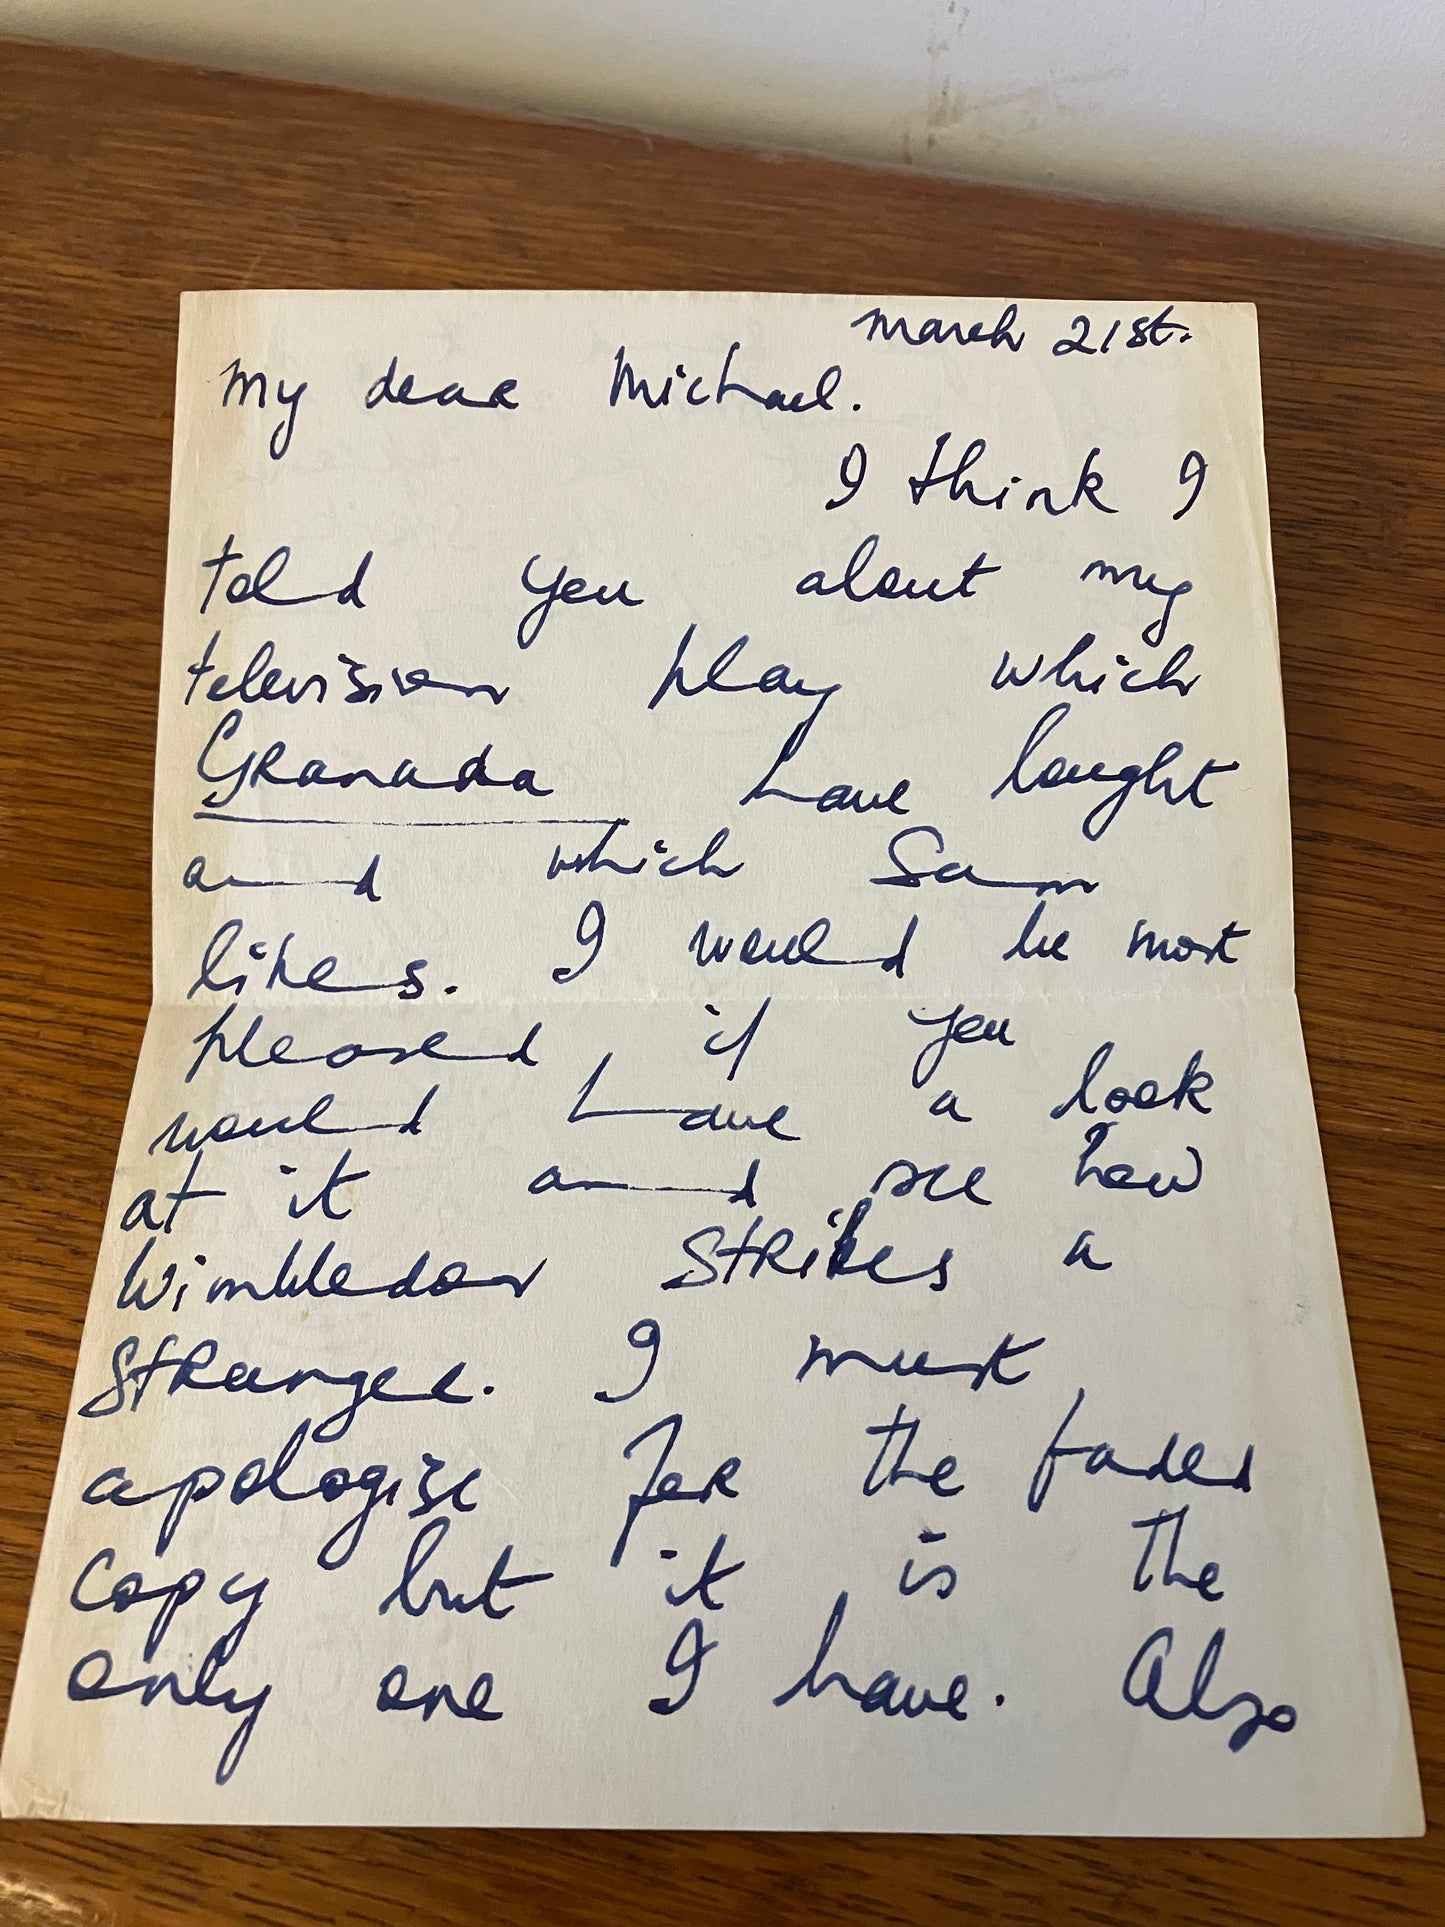 March 21st.
My dear Michael.
I think I
told you about my
television play which
Granada have bought
and which Sam
likes. I would be most
pleased, if you
would have a look
at it and see how
Wimbledon strikes a
stranger. I must
apologise for the faded
copy but it is the
only one I have. Also